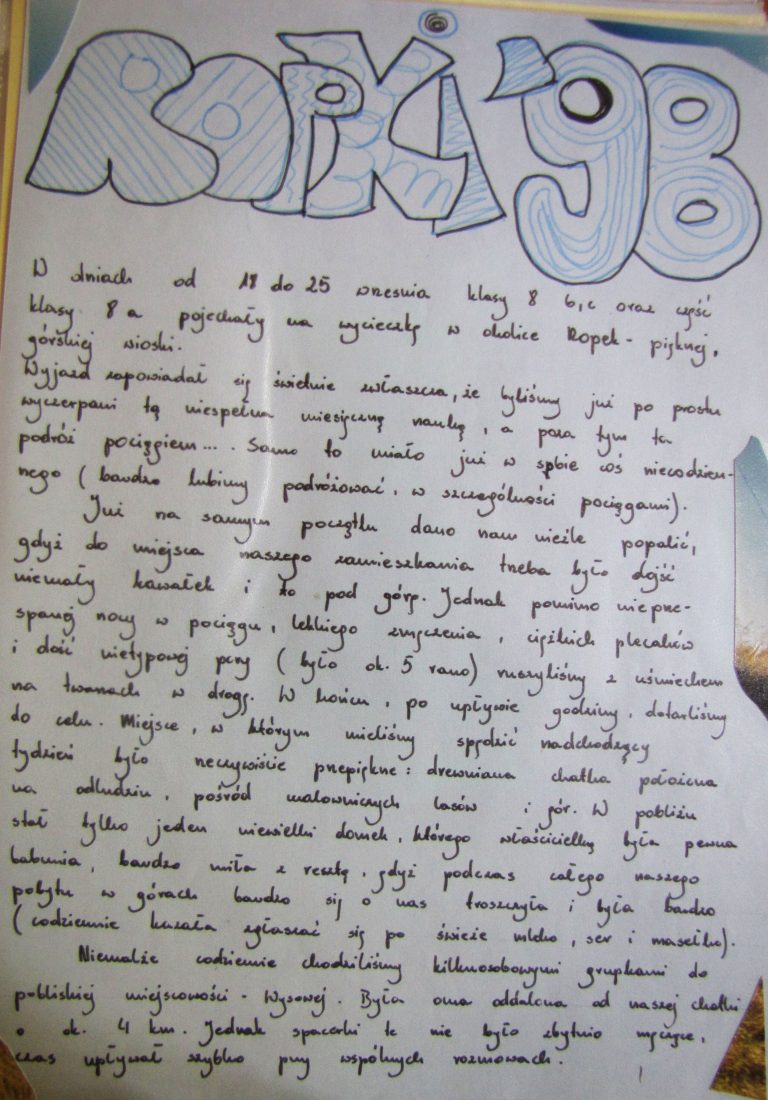 ROPKI '98
W dniach od 18 do 25 wrzesnia klasy 8 b, c oraz część
klasy 8 a pojechały na wycieczkę w okolice Ropek - pięknej,
górskiej wioski.
Wyjazd zapowiadał się świetnie zwłaszcza, że byliśmy już po prostu
wyczerpani tą niespełna miesięczną nauką, a poza tym ta
podróż pociągiem... . Samo to miało już w sobie coś niecodzien-
nego (bardzo lubimy podróżować, w szczególności pociągami).
Już na samym początku dano nam nieźle popalić,
gdyż do miejsca naszego zamieszkania trzeba było dojść
niemały kawałek i to pod górę. Jednak pomimo nieprze-
spanej nocy w pociągu, lekkiego zmęczenia, ciężkich plecaków
i dość nietypowej pory (było ok. 5 rano) ruszyliśmy z uśmiechem
na twarzach w drogę. W końcu, po upływie godziny, dotarliśmy
do celu. Miejsce, w którym mieliśmy spędzić nadchodzący
tydzień było rzeczywiście przepiękne: drewniana chatka położona
na odludziu, pośród malowniczych lasów i gór. W pobliżu
stał tylko jeden niewielki domek, którego właścicielką była pewna
babunia, bardzo miła z resztą, gdyż podczas całego naszego
pobytu w górach bardzo się o nas troszczyła i była bardzo
(codziennie kazała zgłaszać się po świeże mleko, ser i masełko).
Niemalże codziennie chodziliśmy kilkuosobowymi grupkami do
pobliskiej miejscowości - Wysowej. Była ona oddalona od naszej chatki
o ok. 4 km. Jednak spacerki te nie było zbytnio męczące,
czas upływał szybko przy wspólnych rozmowach.